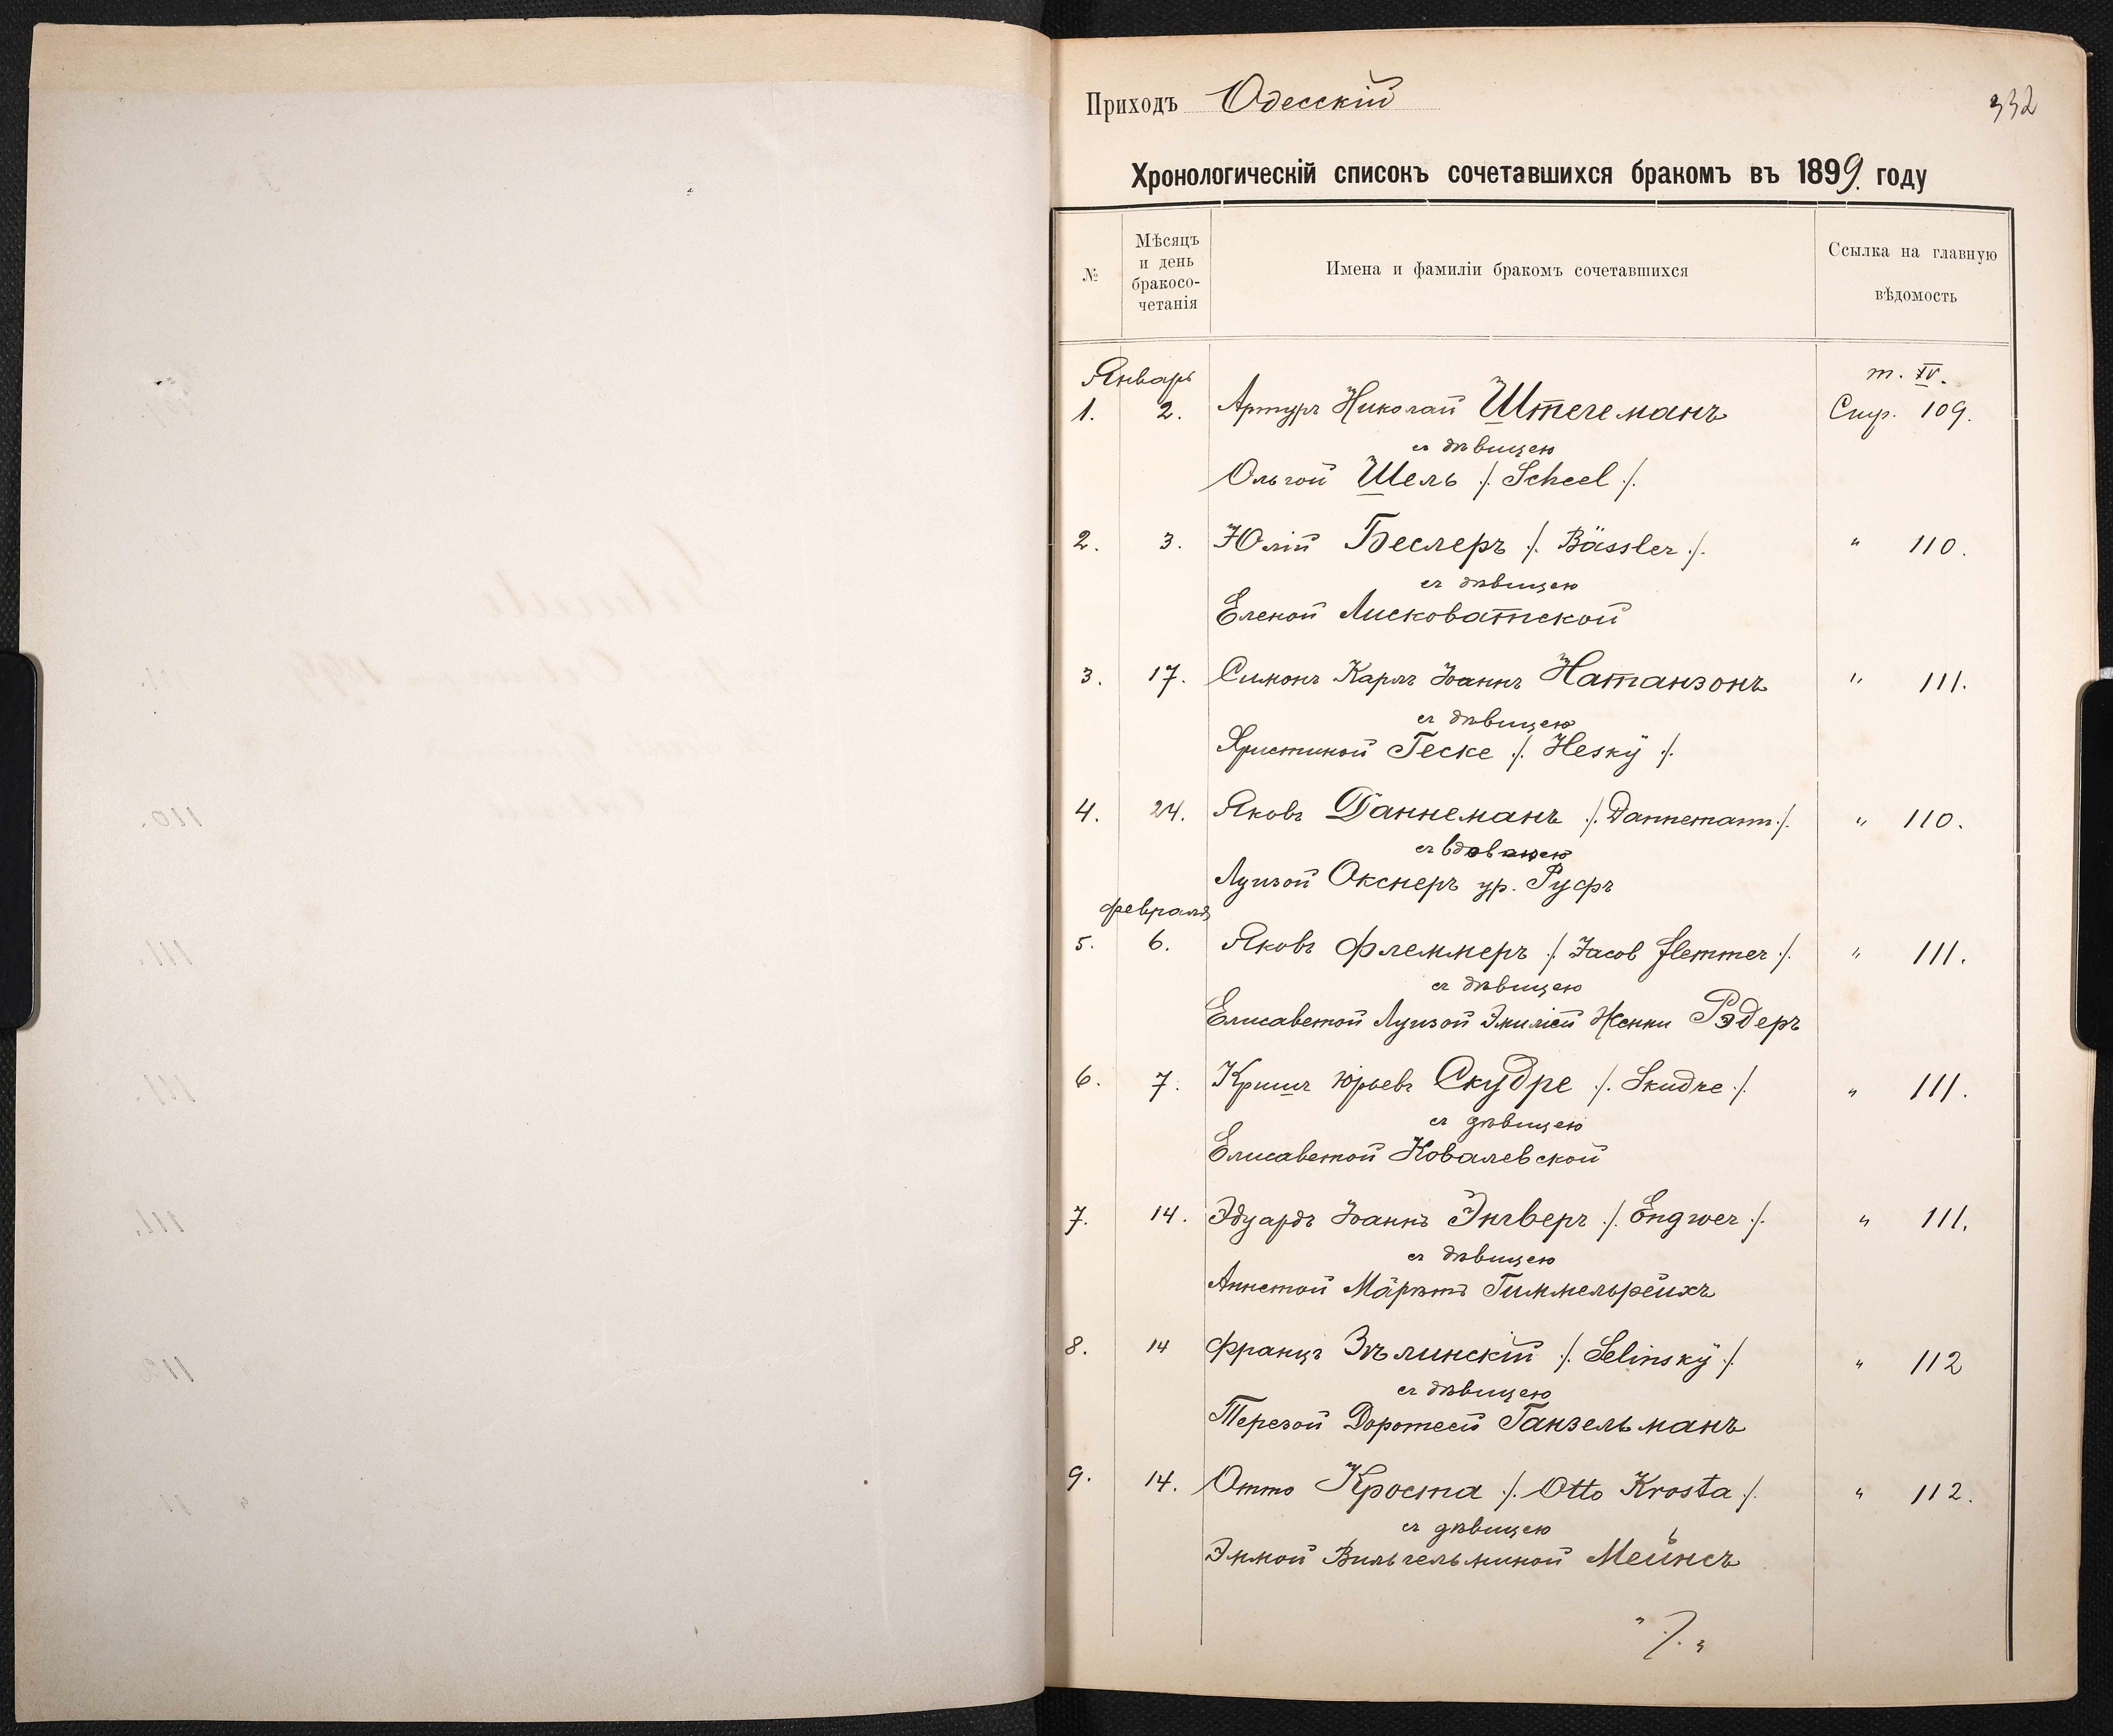 Приходъ Одесскій
332
Хронологическій списокъ сочетавшихся бракомъ въ 1899. году
№
Мѣсяцъ
и день
бракосо-
четанія
Имена и фамиліи бракомъ сочетавшихся
Ссылка на главную
вѣдомость
Январь
т. IV.
1. 2. Артуръ Николай Штегеманъ Стр. 109.
съ дѣвицею
Ольгой Шель /. Scheel ./.
2. 3. Юлій Беслеръ /. Bässler ./. " 110.
съ дѣвицею
Еленой Лисковатской
3. 17. Симонъ Карлъ Іоаннъ Натанзонъ " 111.
съ дѣвицею
Христиной Геске ./. Heskÿ ./.
4. 24. Яковъ Даннеманъ ./. Dannemann ./. " 110.
съ вдовою
Луизой Окснеръ ур. Руфъ
Февраля
5. 6. Яковъ Флеммеръ /. Jacob Flemmer ./. " 111.
съ дѣвицею
Елисаветой Луизой Эмиліей Женни Рэдеръ
6. 7. Кришъ Юрьевъ Скудре ./. Skudre ./. " 111.
съ дѣвицею
Елисаветой Ковалевской
7. 14. Эдуардъ Іоаннъ Энгверъ ./. Engwer ./. " 111.
съ дѣвицею
Аннетой Гиммельрейхъ
8. 14 Францъ Зѣлинскій /. Selinskÿ ./. " 112
съ дѣвицею
Терезой Доротеей Ганзельманъ
9. 14. Отто Кроста ./. Otto Krosta ./. " 112.
съ дѣвицею
Эммой Вильгельминой Мейнсъ